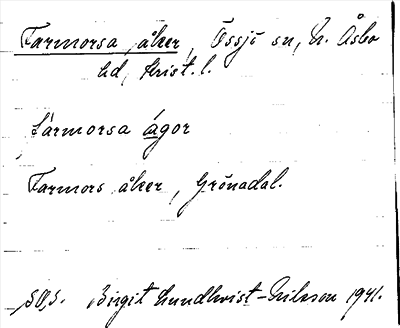 Farmorsa åker, Össjö sn, N. Åsbo
hd, Krist. l.
Farmorsa ågor
Farmors åker, Grönadal.
SO,S. Birgit Lundkvist-Nilsson 1941.